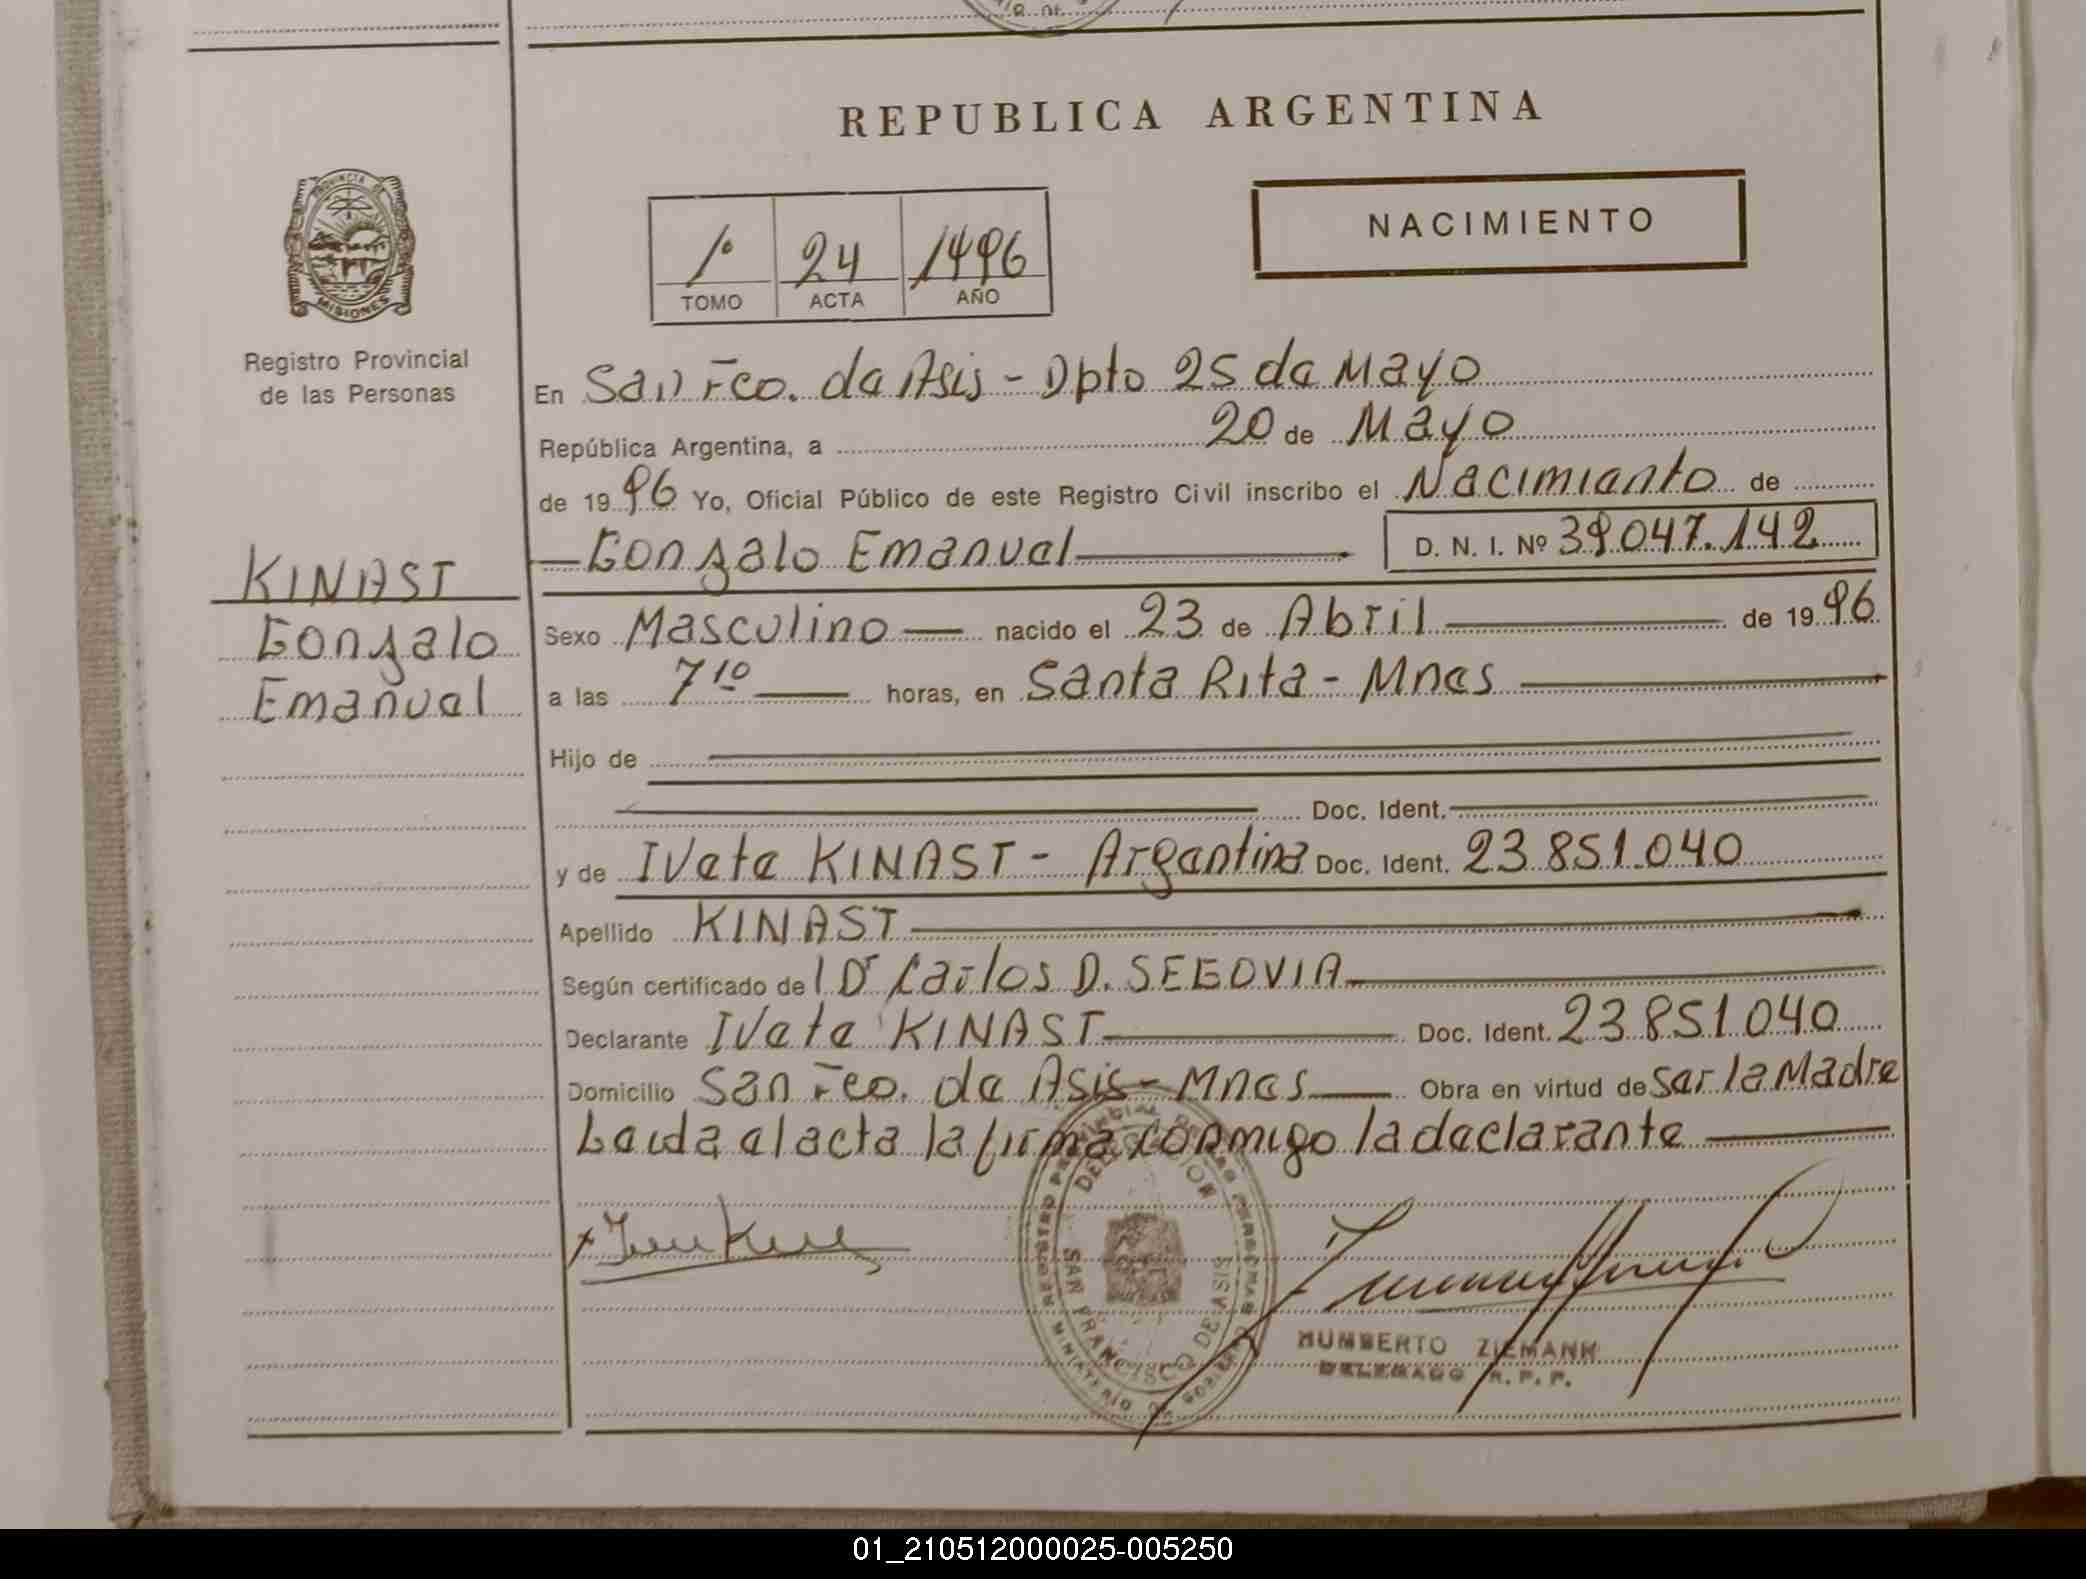 REPUBLICA ARGENTINA
PROVINCIA DE
MISIONES
Registro Provincial
de las Personas
1º 24 1996
TOMO ACTA AÑO
NACIMIENTO
En San Fco. de Asis - Dpto 25 de Mayo
República Argentina, a 20 de Mayo
de 1996 Yo, Oficial Público de este Registro Civil inscribo el Nacimiento de
Gonzalo Emanuel D. N. I. Nº 39.047.142
KINAST
Gonzalo
Emanuel
Sexo Masculino nacido el 23 de Abril de 1996
a las 7 10 horas, en Santa Rita - Mnes
Hijo de
Doc. Ident.
y de Ivete KINAST - Argentina Doc. Ident. 23.851.040
Apellido KINAST
Según certificado del Dr Carlos D. SEGOVIA
Declarante Ivete KINAST Doc. Ident. 23.851.040
Domicilio San Fco. de Asis - Mnes Obra en virtud de ser la Madre
Leida el acta la firma conmigo la declarante
SAN FRANCISCO DE ASIS
HUMBERTO ZIEMANN
DELEGADO R. P. P.
01_210512000025-005250